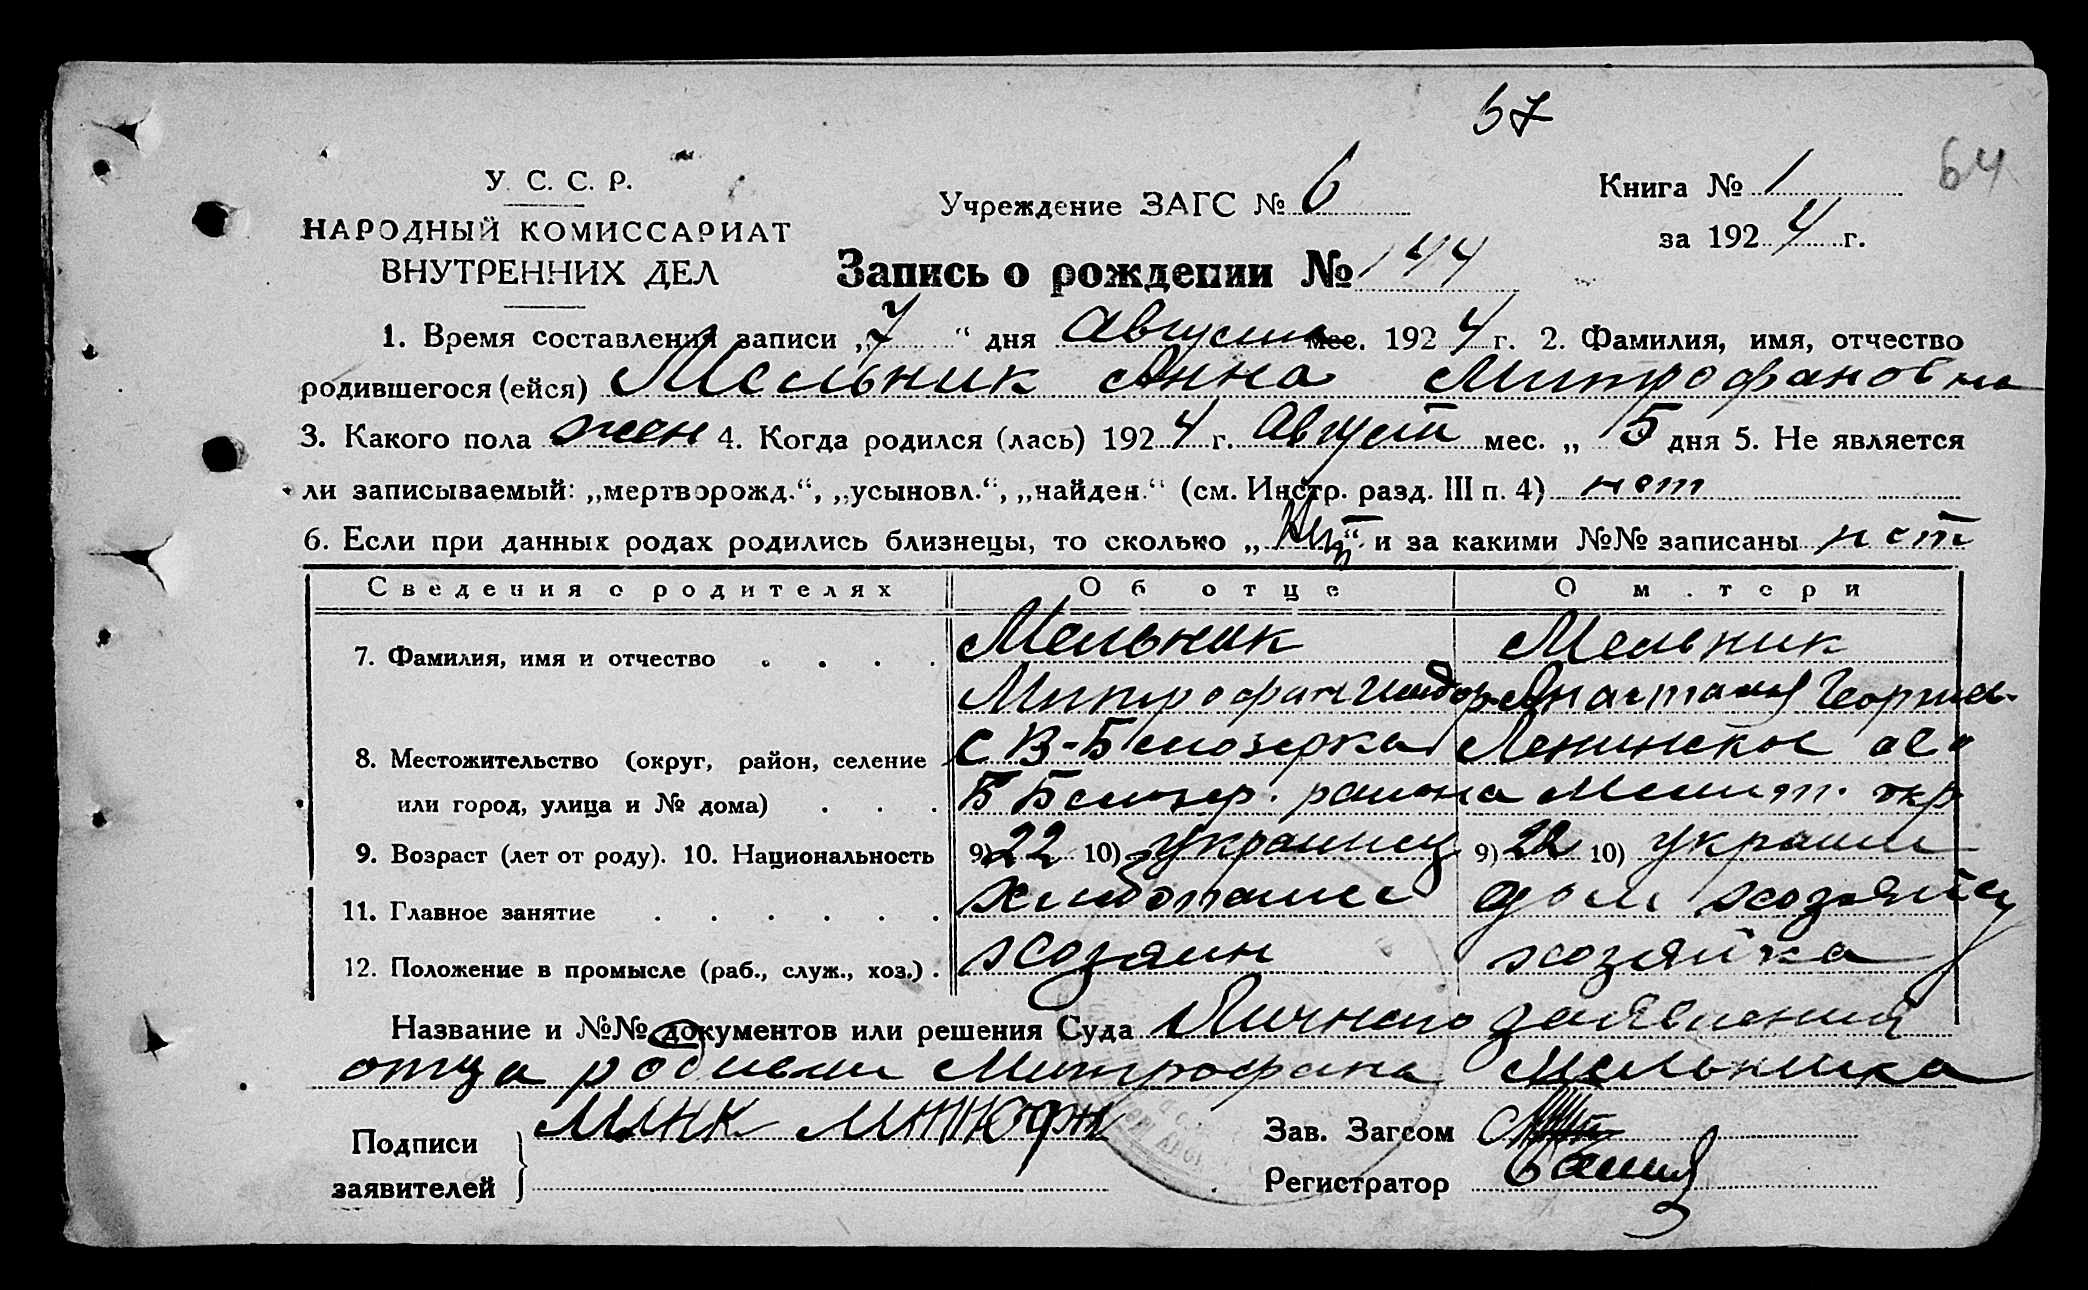 57
64
У. С. С. Р.
НАРОДНЫЙ КОМИССАРИАТ
ВНУТРЕННИХ ДЕЛ
Учреждение ЗАГС № 6
Книга № 1
за 1924 г.
Запись о рождении № 144
1. Время составления записи „7“ дня Августа мес. 1924 г. 2. Фамилия, имя, отчество
родившегося (ейся) Мельник Анна Митрофановна
3. Какого пола жен 4. Когда родился (лась) 1924 г. Август мес. „5 дня 5. Не является
ли записываемый: „мертворожд.“, „усыновл.“, „найден.“ (см. Инстр. разд. III п. 4) нет
6. Если при данных родах родились близнецы, то сколько „Нет“ и за какими №№ записаны нет
Сведения о родителях Об отце О м.тери
7. Фамилия, имя и отчество Мельник Мельник
Митрофан Анастасия Георгиев-
8. Местожительство (округ, район, селение С В-Белозерка Ленинское
или город, улица и № дома) Б Белозер. района Мелит. окр
9. Возраст (лет от роду). 10. Национальность 9) 22 10) украинец 9) 22 10) украин
11. Главное занятие хлебопашес дом хозяйст
12. Положение в промысле (раб., служ., хоз.) хозяин хозяйка
Название и №№ документов или решения Суда Личного заявления
отца Митрофана Мельника
Подписи
заявителей
Зав. Загсом
Регистратор